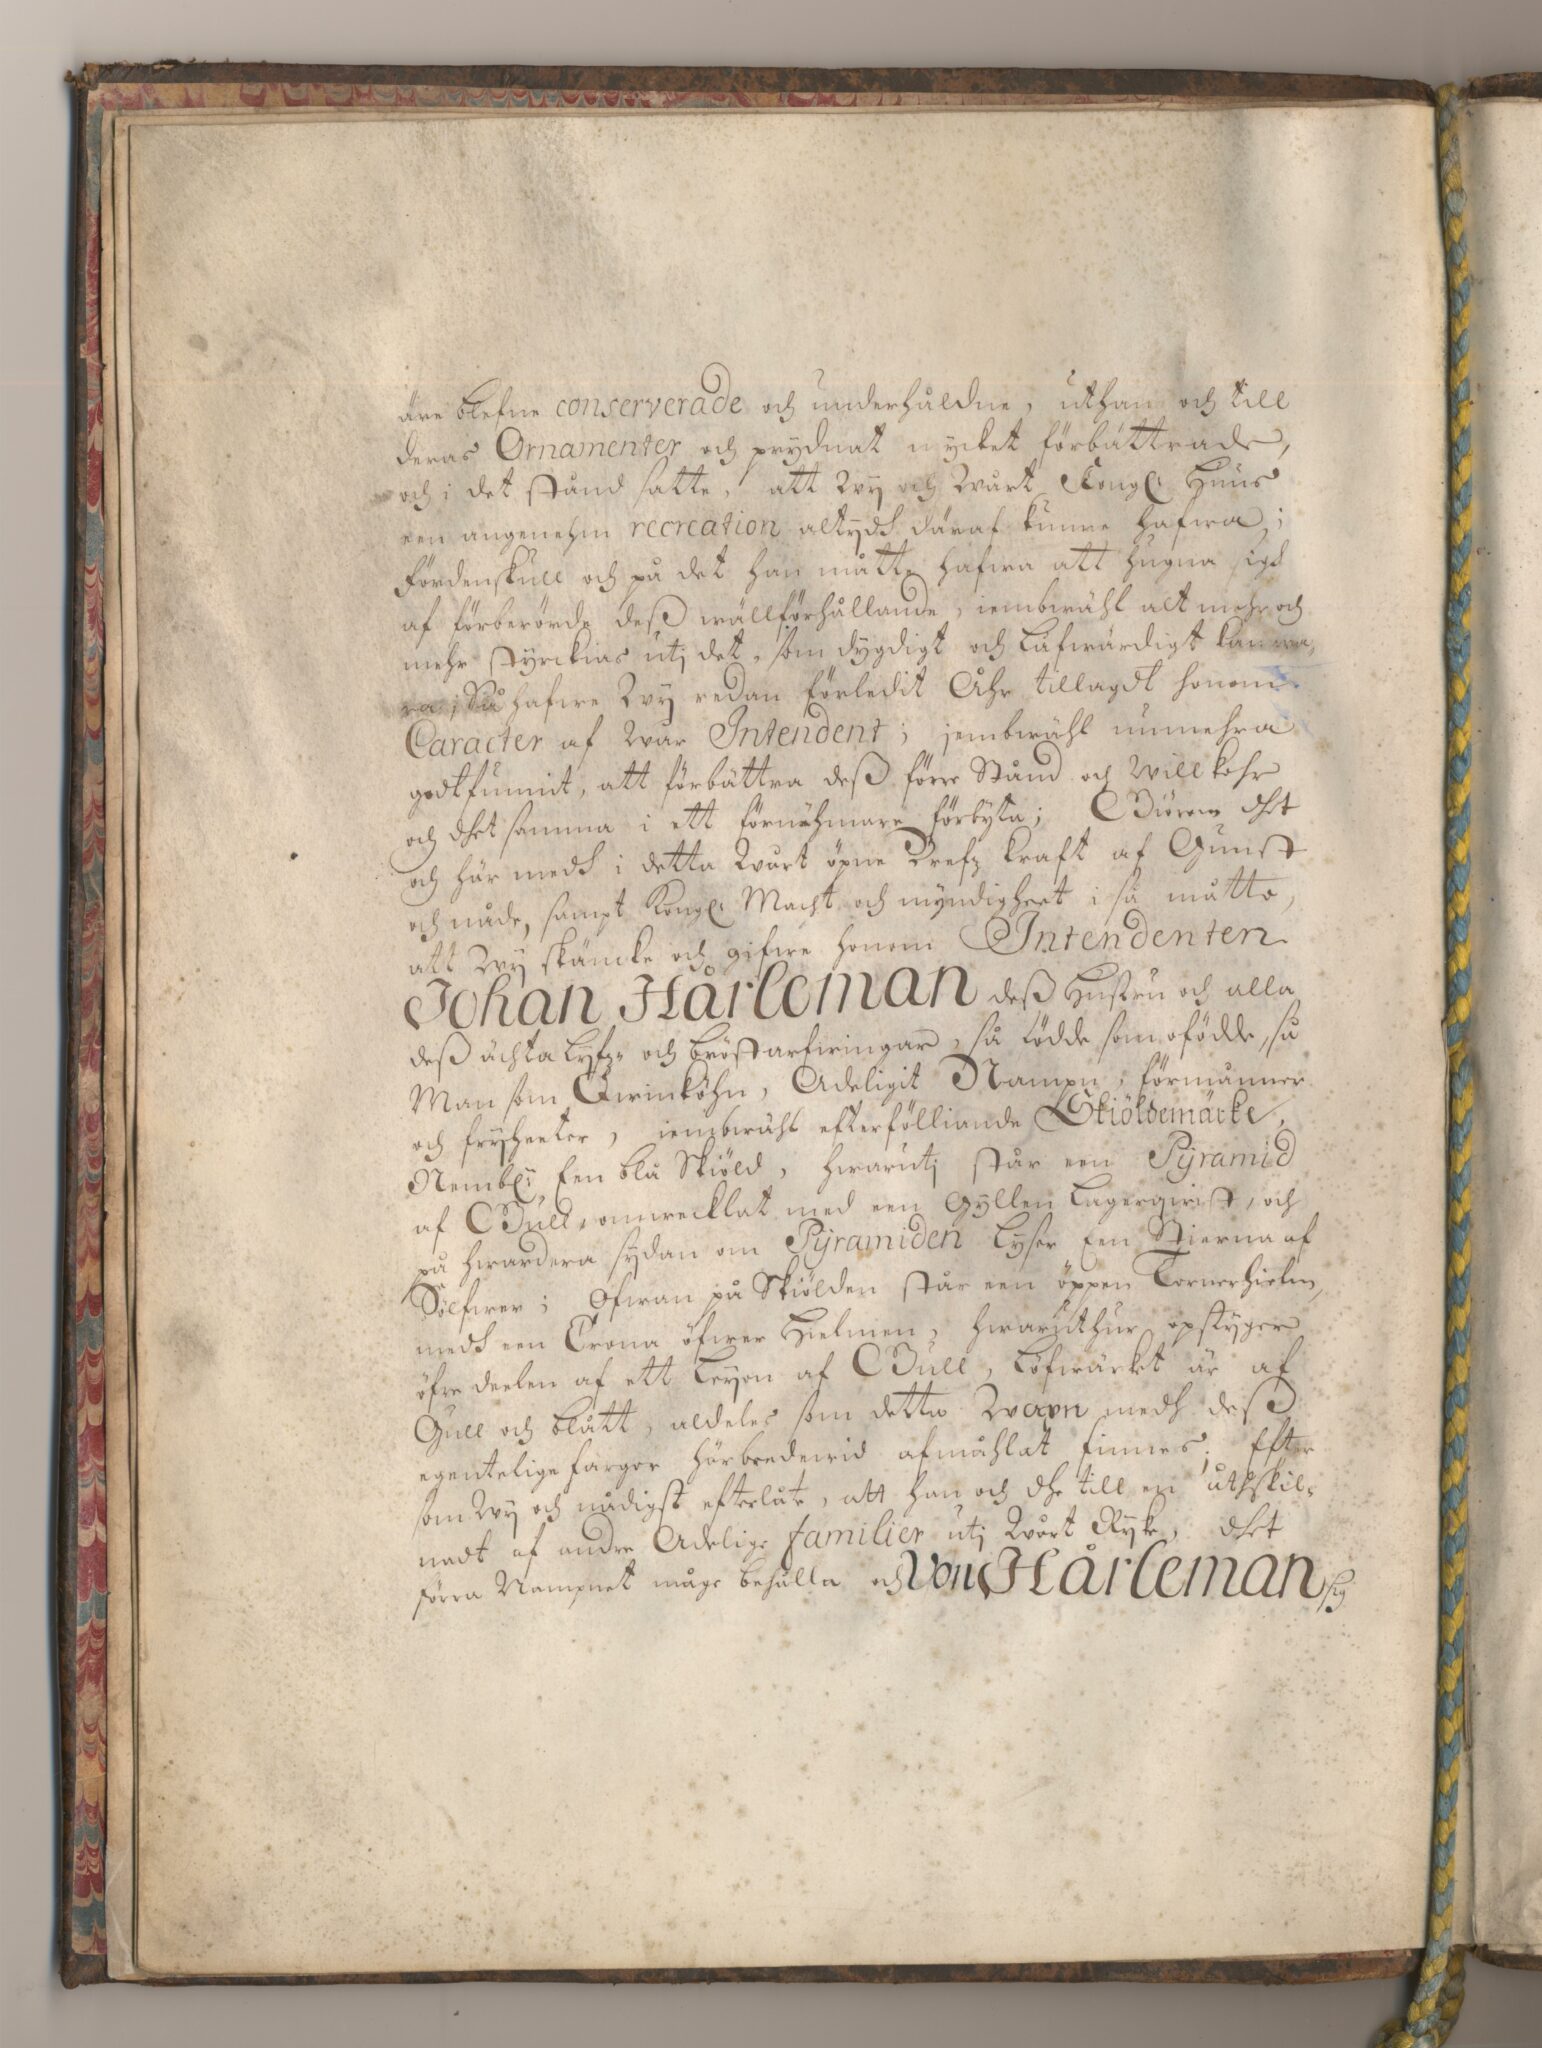 äre blefne conserverade och underhåldne, uthan och till
deras Ornamenter och prydnat mycket förbättrade,
och i det stånd satte, att Wij och Wårt Kongl: Huus
een angenehm recreation altydh däraf kunne hafwa;
fördenskull och på det han måtte hafwa att hugna sigh
af förberörde deß wällförhållande, iembwähl alt mehr och
mehr styrckias utj det, som dygdigt och låfwärdigt kan wa,
ra; Så hafwe Wij redan förledit Åhr tillagdt honom
Caracter af War Intendent; jembwähl nunmehra
godtfunnit, att förbättra deß förre Stånd och Willkohr
och dhet samma i ett förnähmare förbyta; Giörom dhet
och här medh i detta Wårt öpne Brefz kraft af Gunst
och nåde, sampt Kongl: Macht och myndigheet i så måtto,
att Wij skäncke och gifwe honom Intendenten
Johan Hårleman deß Hustru och alla
deß ächta Lyfz- och bröstarfwingar, så födde som ofödde, så
Man som Qwinköhn, Adeligit Nampn, förmåner
och frijheeter, iembwähl efterfölliande Skiöldemärke,
Nembl: Een blå Skiöld, hwarutj står een Pyramid
af Gull, omwecklat med een Gyllen Lagerqwist, och
på hwardera sydan om Pyramiden Lyser Een Stierna af
Sölfwer; Ofwan på Skiölden står een öppen Tornerhielm,
medh een Crona öfwer Hielmen, hwaruthur opstyger
öfre deelen af ett Leyon af Gull, Löfwärket är af
Gull och blått, aldeles som detta Wapn medh deß
egentelige fargor härbredewid afmåhlat finnes; Efter
som Wij och nådigst efterlåte, att han och dhe till en uthskil,
nadt af andre Adelige familier utj Wårt Ryke, dhet
förra Nampnet måge behålla och Von Hårleman sig